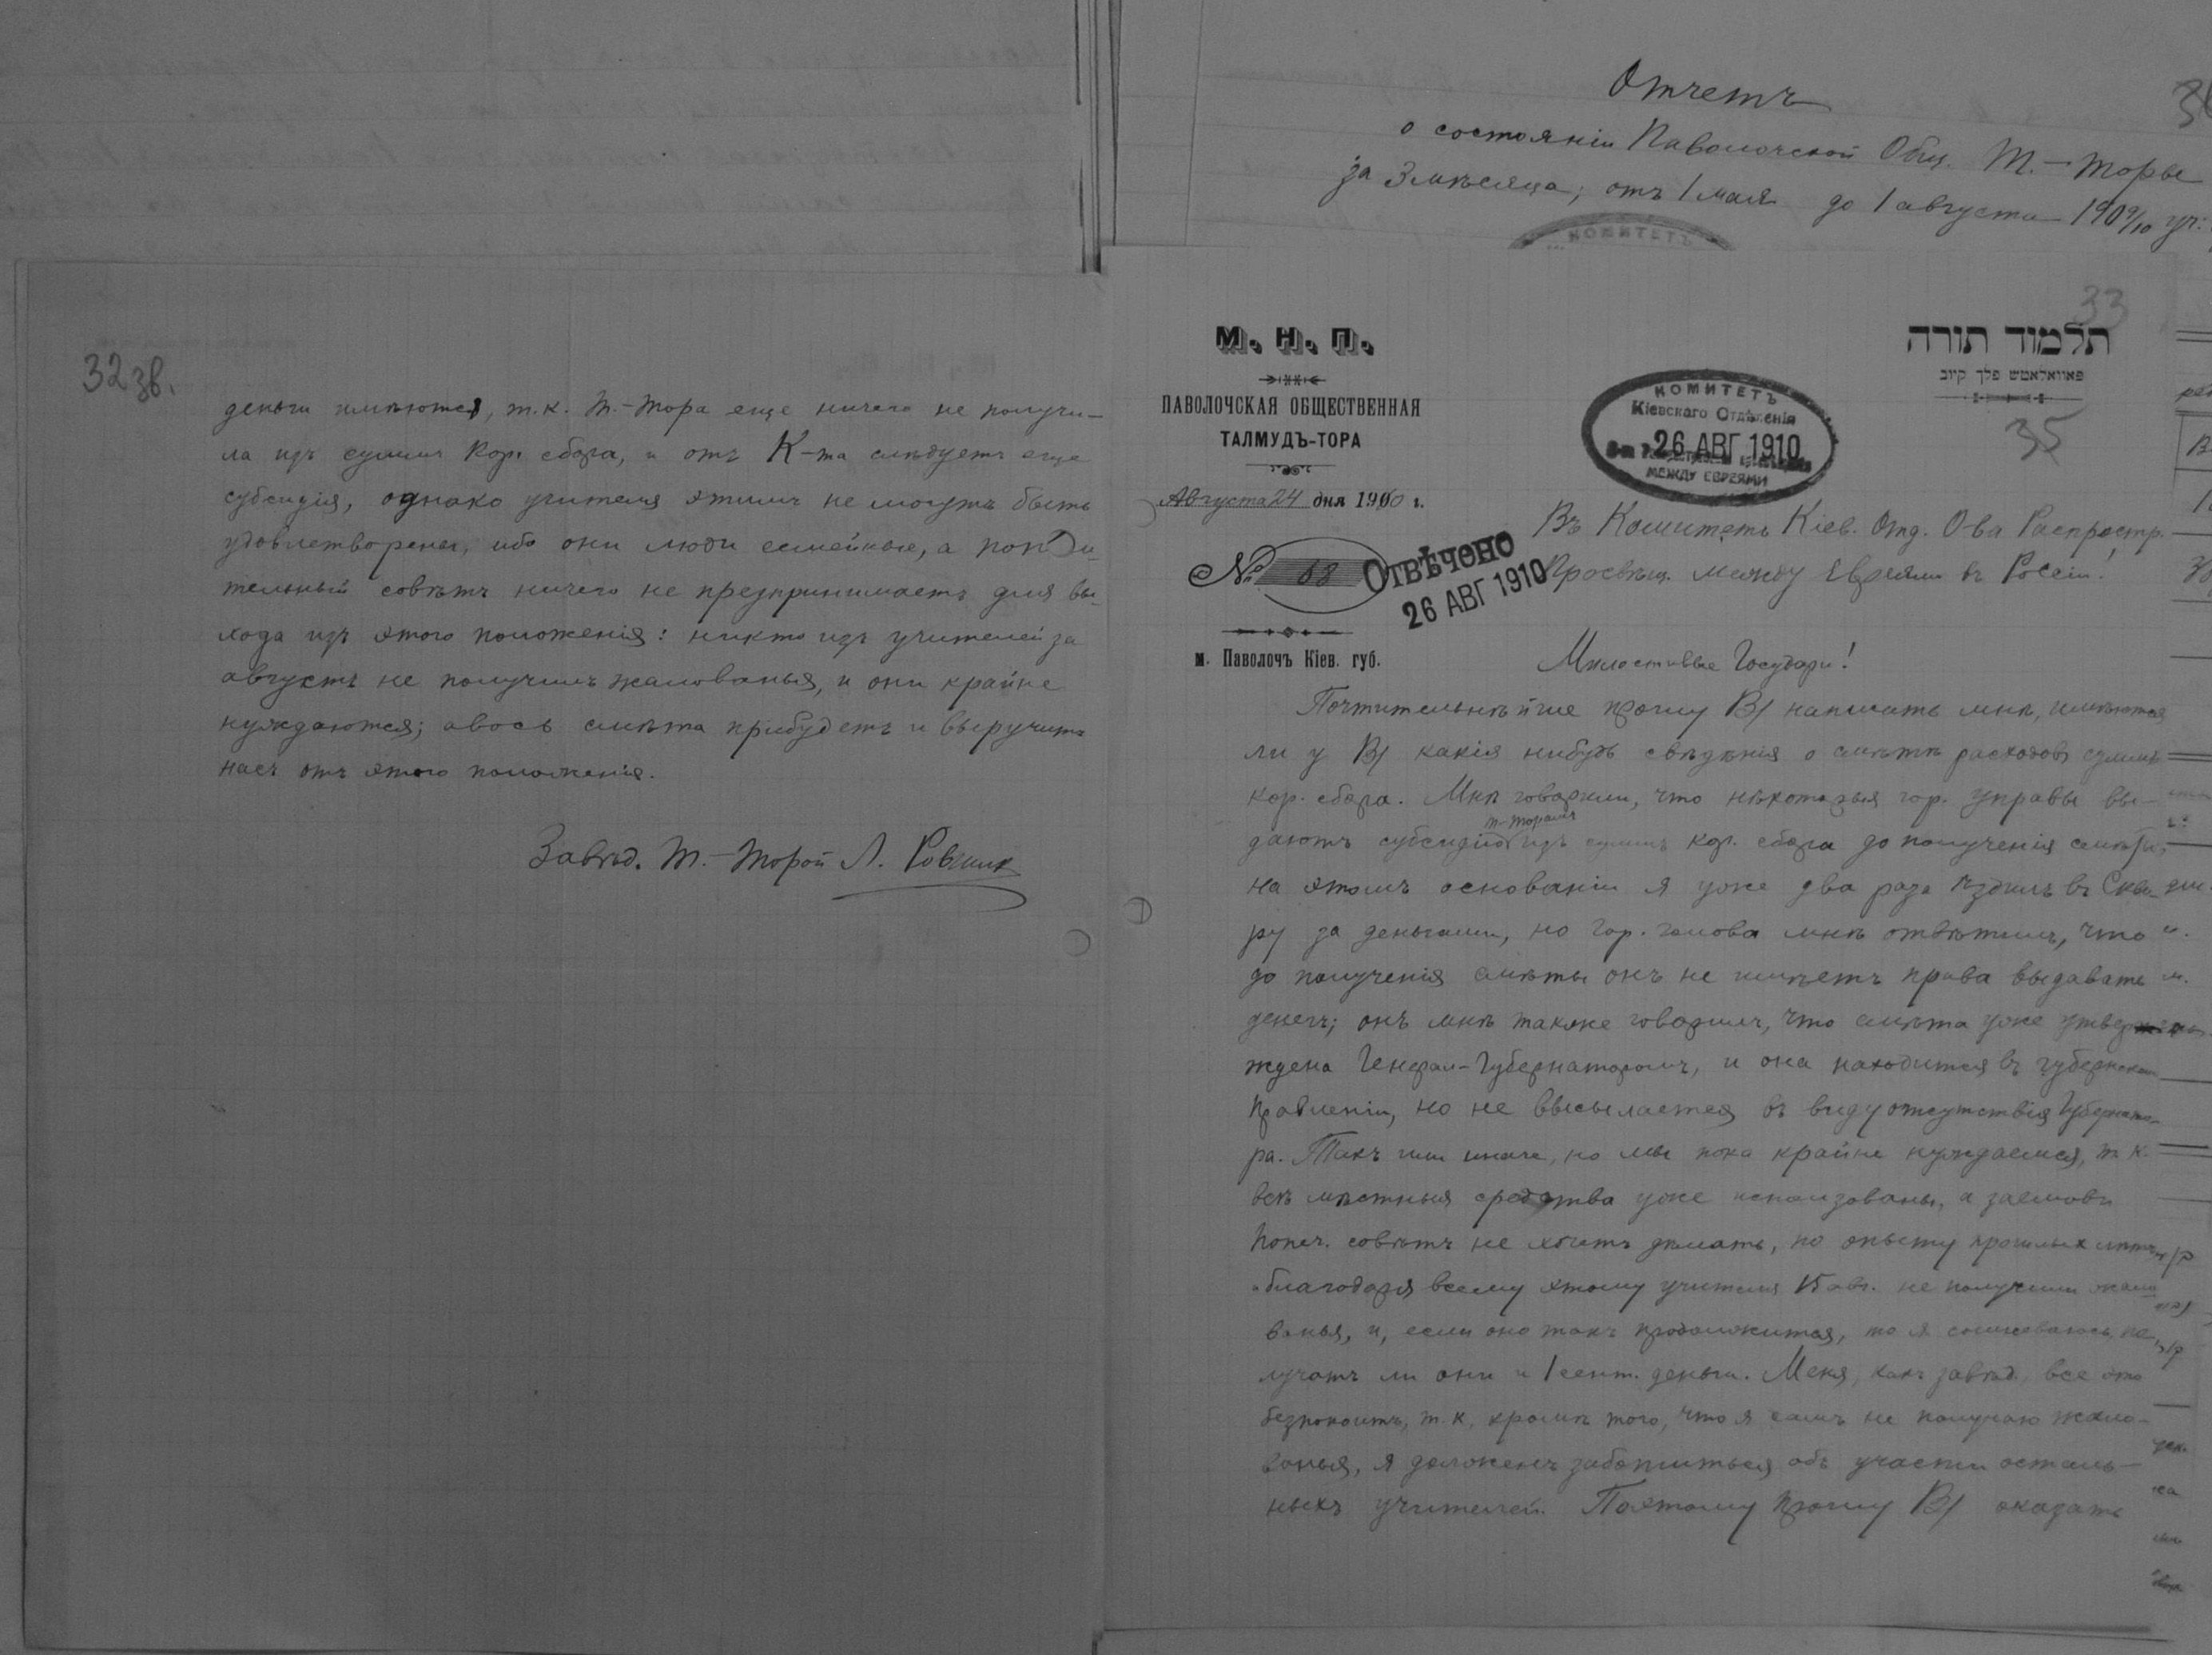 32 зв.
деньги имѣются, т.к. Т.-Тора еще ничего не получи-
ла изъ суммъ кор. сбора, и отъ К-та слѣдуетъ еще
субсидія, однако учителя этимъ не могутъ быть
удовлетворены, ибо они люди семейные, а попечи-
тельный совѣтъ ничего не предпринимаетъ для вы-
хода изъ этого положенія: никто изъ учителей за
августъ не получилъ жалованья, и они крайне
нуждаются; авось смѣта прибудетъ и выручитъ
насъ отъ этого положенія.
Завѣд. Т.-Торой Л. Ровшик
Отчетъ
о состояніи Паволочской Общ. Т.-Торы
за 3 мѣсяца, отъ 1 мая до 1 августа 1909/10 уч.
КОМИТЕТЪ
33
М. Н. П.
ПАВОЛОЧСКАЯ ОБЩЕСТВЕННАЯ
ТАЛМУДЪ-ТОРА
Августа 24 дня 1910 г.
№ 68
м. Паволочь Кіев. губ.
תלמוד תורה
פאוואלאטש פלך קיוב
35
КОМИТЕТЪ
Кіевскаго Отдѣленія
26 АВГ 1910
МЕЖДУ ЕВРЕЯМИ
ОТВѢЧЕНО
26 АВГ 1910
Въ Комитетъ Кіев. Отд. О-ва Распростр.
Просвѣщ. между Евреями въ Россіи!
Милостивые Государи!
Почтительнѣйше прошу В/ написать мнѣ, имѣются
ли у В/ какія нибудь свѣдѣнія о смѣтѣ расходовъ суммъ
кор. сбора. Мнѣ говорили, что нѣкоторыя гор. управы вы-
даютъ субсидію Т.-Торамъ изъ суммъ кор. сбора до полученія смѣты,
на этомъ основаніи я уже два раза ѣздилъ въ Скви-
ру за деньгами, но Гор. голова мнѣ отвѣтилъ, что
до полученія смѣты онъ не имѣетъ права выдавать
денегъ; онъ мнѣ также говорилъ, что смѣта уже утвер-
ждена Генерал-Губернаторомъ, и она находится въ губернском
Правленіи, но не высылается въ виду отсутствія Губернато-
ра. Такъ или иначе, но мы пока крайне нуждаемся, т.к.
всѣ мѣстныя средства уже использованы, а займовъ
Попеч. совѣтъ не хочетъ дѣлать, по опыту прошлыхъ лѣтъ
благодаря всему этому учителя 15 авг. не получили жало-
ванья, и, если оно такъ продолжится, то я сомнѣваюсь, по-
лучатъ ли они и 1 сент. деньги. Меня, какъ завѣд., все это
безпокоитъ, т.к. кромѣ того, что я самъ не получаю жало-
ванья, я долженъ заботиться объ участи осталь-
ныхъ учителей. Поэтому прошу В/ оказать